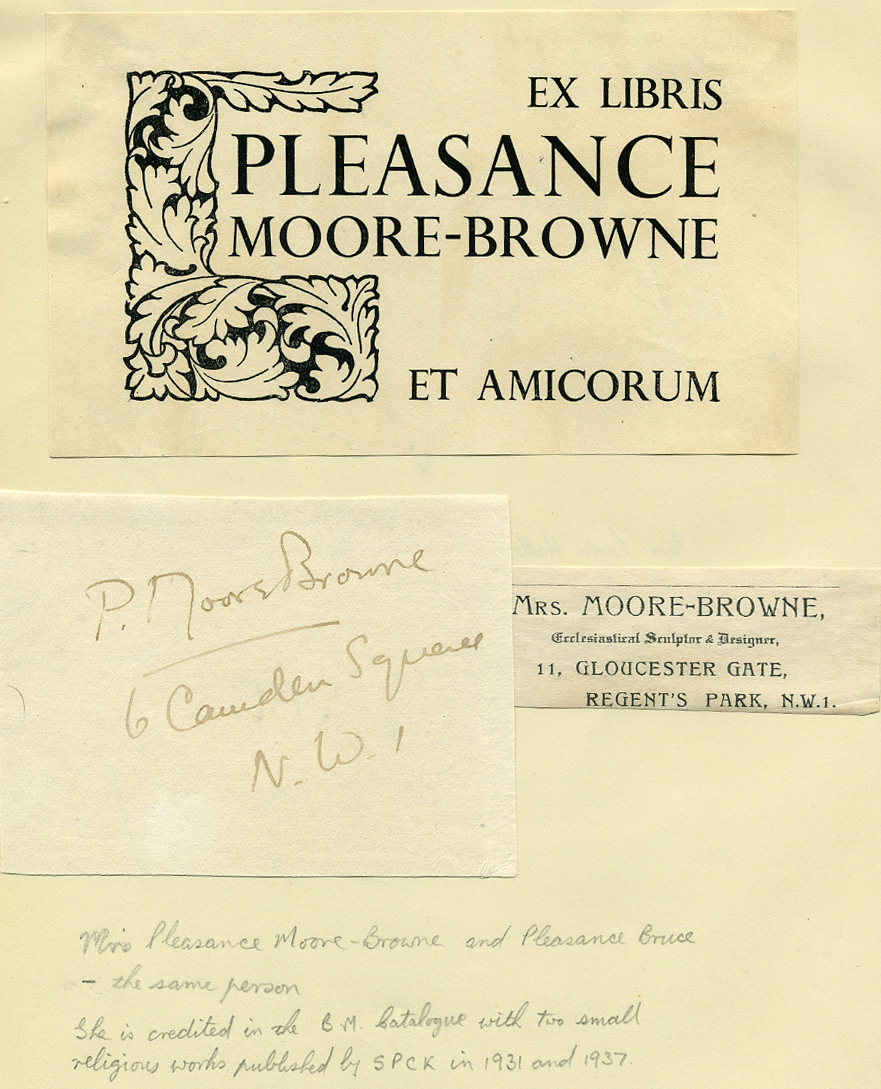 EX LIBRIS
PLEASANCE
MOORE-BROWNE
ET AMICORUM
P. Moore Browne
6 Camden Square
N.W.1
MRS. MOORE-BROWNE,
Ecclesiastical Sculptor & Designer,
11, GLOUCESTER GATE,
REGENT'S PARK, N.W.1.
Mrs Pleasance Moore-Browne and Pleasance Bruce
- the same person
She is credited in the B.M. Catalogue with two small
religious works published by SPCK in 1931 and 1937.